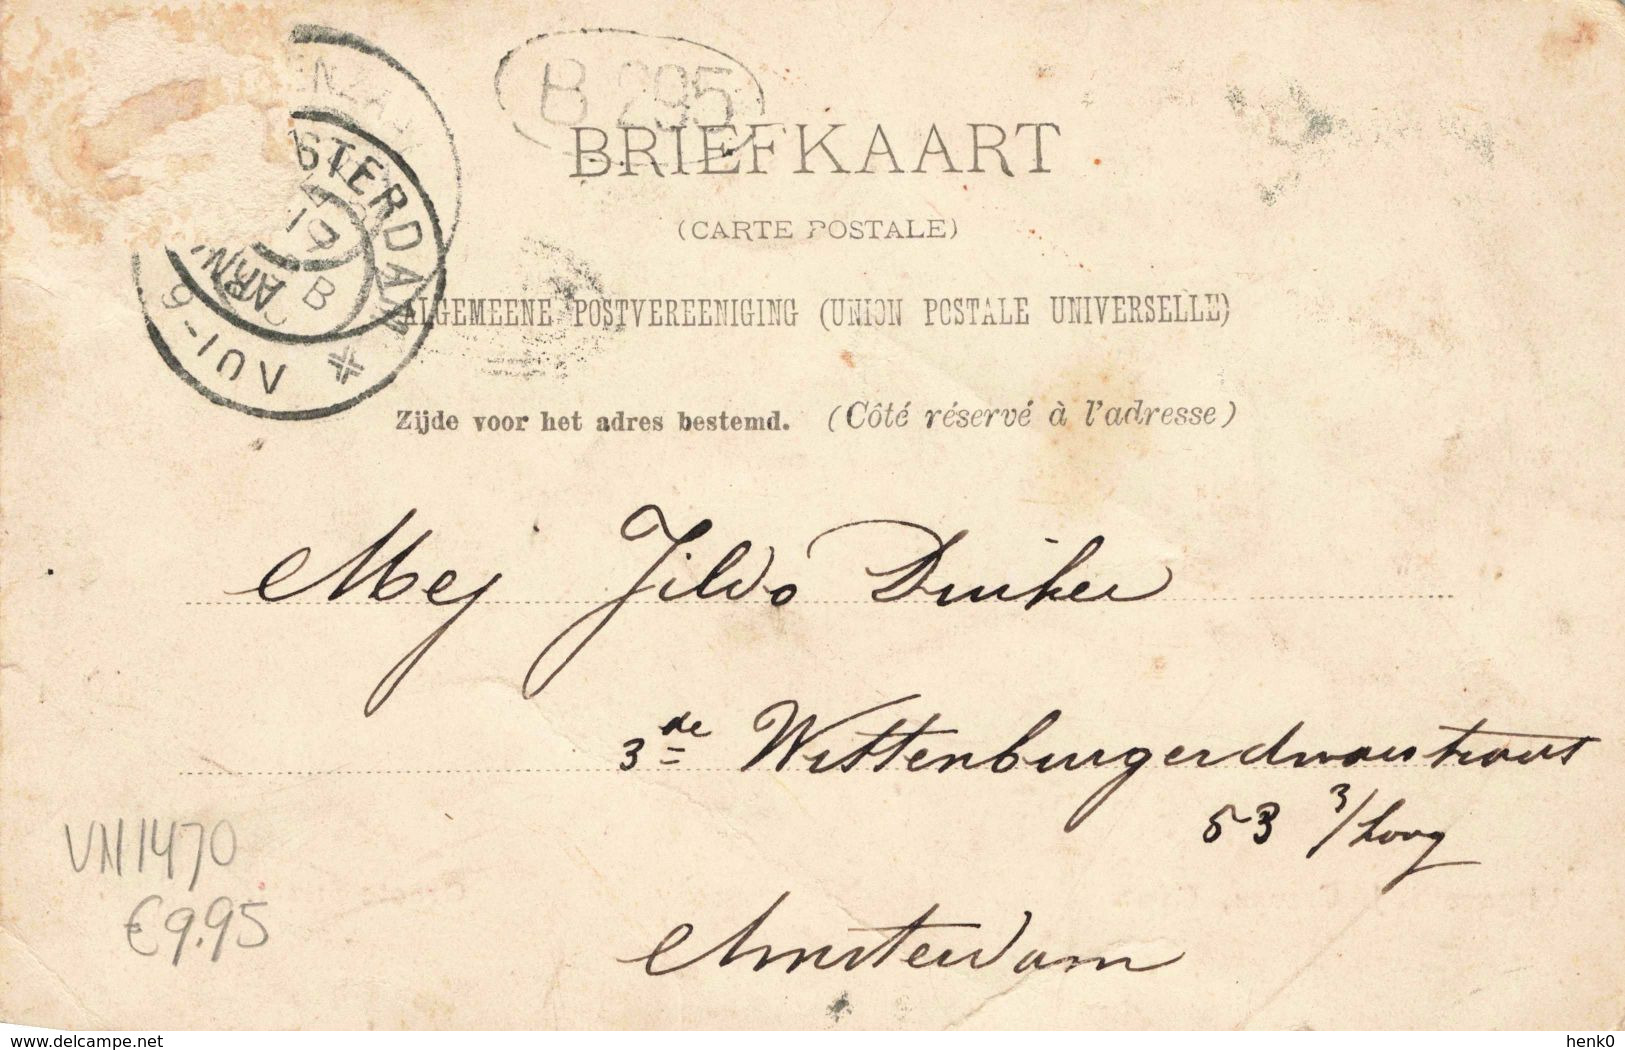 B 295
BRIEFKAART
(CARTE POSTALE)
ALGEMEENE POSTVEREENIGING (UNION POSTALE UNIVERSELLE)
Zijde voor het adres bestemd. (Côté réservé à l'adresse)
Mej Duiker
3de Wittenburgerdwarsstraat
53 3/hoog
Amsterdam
VN1470
€9.95
delcampe.net
henk0